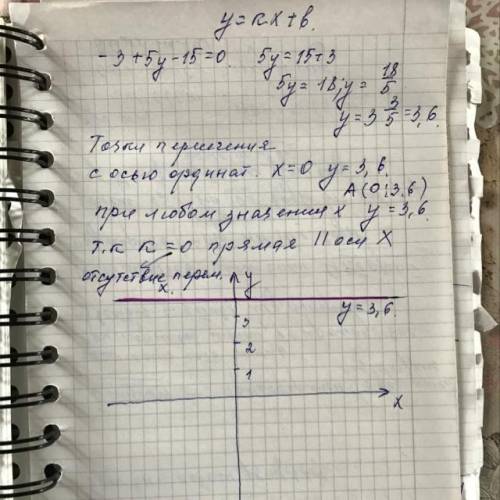 y=кx+в.
-3+5y-15=0. 5y=15+3
5y=18; y= 18/5
y=3 3/5=3,6.
Точки пересечения
с осью ординат. x=0 y=3,6.
A(0;3,6)
при любом значении x y=3,6.
т.к к=0 прямая || оси X
отсутствие перем.
x.
y
y=3,6.
3
2
1
x